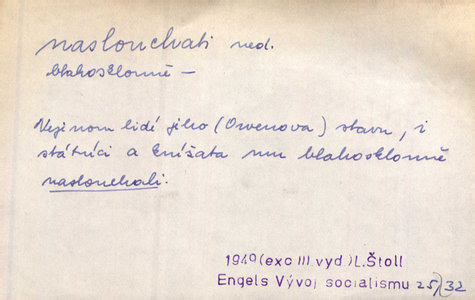 naslouchati ned.
blahosklonně —
Nejenom lidé jeho (Owenova) stavu, i
státníci a knížata mu blahosklonně
naslouchali.
1949 (exc III. vyd.) L. Štoll
Engels Vývoj socialismu 25/32